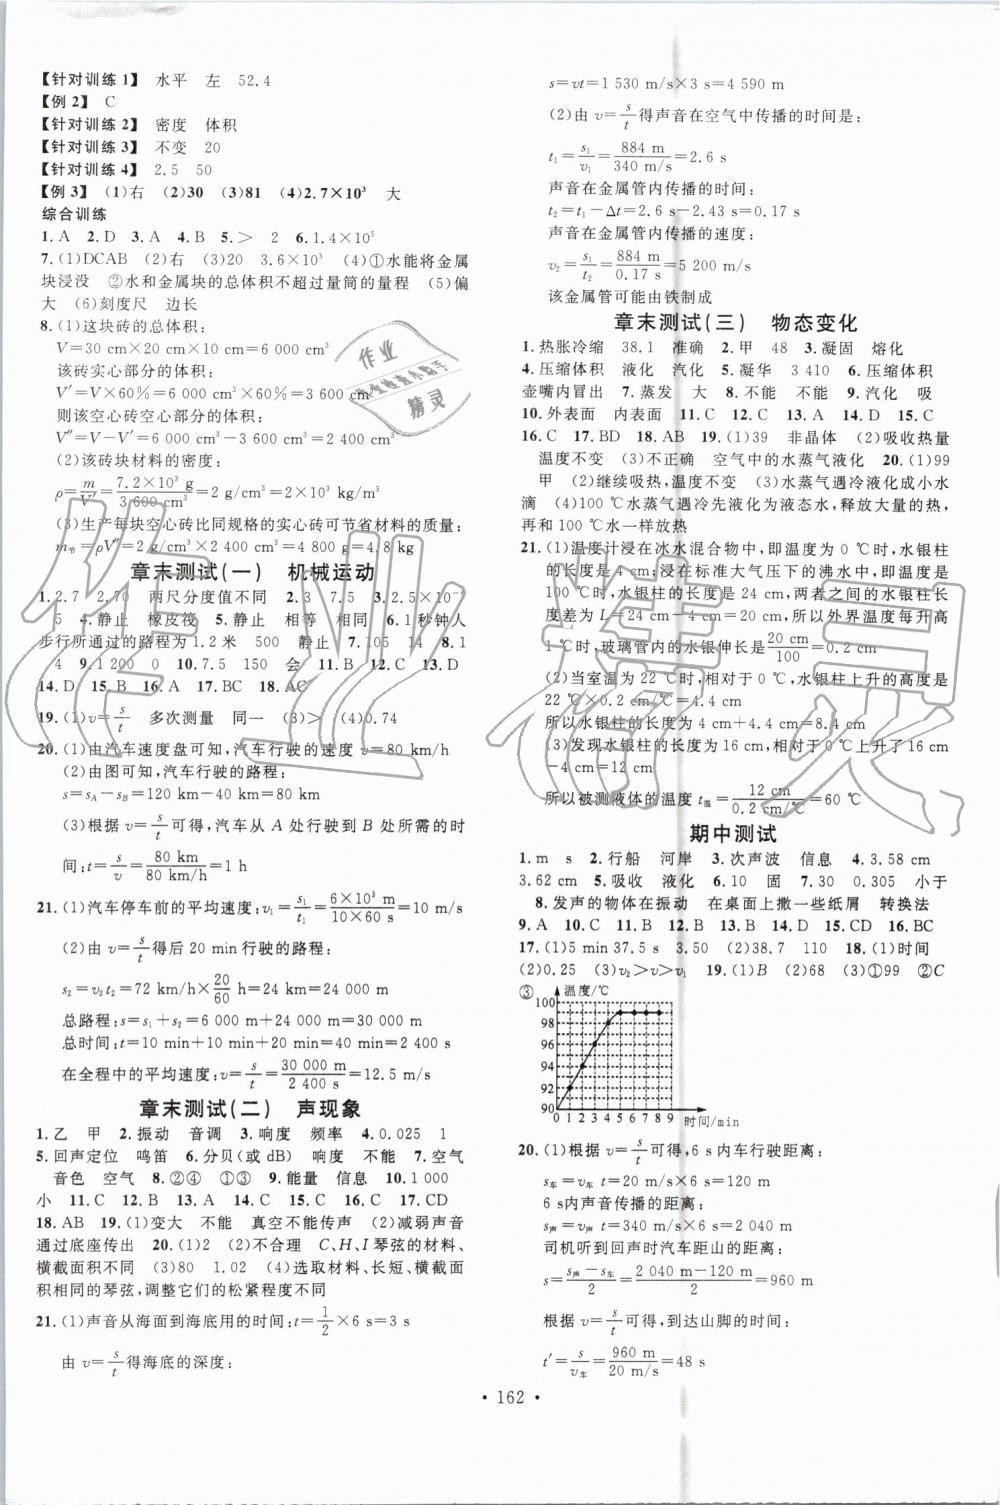 【针对训练1】 水平 左 52.4
【例2】 C
【针对训练2】 密度 体积
【针对训练3】 不变 20
【针对训练4】 2.5 50
【例3】 (1)右 (2)30 (3)81 (4)2.7×10³ 大
综合训练
1.A 2.D 3.A 4.B 5.> 2 6.1.4×10⁵
7.(1)DCAB (2)右 (3)20 3.6×10³ (4)①水能将金属
块浸没 ②水和金属块的总体积不超过量筒的量程 (5)偏
大 (6)刻度尺 边长
8.(1)这块砖的总体积:
V=30 cm×20 cm×10 cm=6 000 cm³
该砖实心部分的体积:
V′=V×60%=6 000 cm³×60%=3 600 cm³
则该空心砖空心部分的体积:
V″=V−V′=6 000 cm³−3 600 cm³=2 400 cm³
(2)该砖块材料的密度:
ρ=m/V′=7.2×10³ g/3 600 cm³=2 g/cm³=2×10³ kg/m³
(3)生产每块空心砖比同规格的实心砖可节省材料的质量:
m节=ρV″=2 g/cm³×2 400 cm³=4 800 g=4.8 kg
章末测试(一) 机械运动
1.2.7 2.70 两尺分度值不同 2.3 7.5 3.2.5×10⁻⁷
5 4.静止 橡皮筏 5.静止 相等 相同 6.1秒钟人
步行所通过的路程为1.2米 500 静止 7.105 14 8.1
4 9.1 200 0 10.7.5 150 会 11.B 12.C 13.D
14.D 15.B 16.A 17.BC 18.AC
19.(1)v=s/t 多次测量 同一 (3)> (4)0.74
20.(1)由汽车速度盘可知,汽车行驶的速度 v=80 km/h
(2)由图可知,汽车行驶的路程:
s=sA−sB=120 km−40 km=80 km
(3)根据 v=s/t可得,汽车从 A 处行驶到 B 处所需的时
间:t=s/v=80 km/80 km/h=1 h
21.(1)汽车停车前的平均速度:v₁=s₁/t₁=6×10³ m/10×60 s=10 m/s
(2)由 v=s/t得后 20 min行驶的路程:
s₂=v₂t₂=72 km/h×20/60 h=24 km=24 000 m
总路程:s=s₁+s₂=6 000 m+24 000 m=30 000 m
总时间:t=10 min+10 min+20 min=40 min=2 400 s
在全程中的平均速度:v=s/t=30 000 m/2 400 s=12.5 m/s
章末测试(二) 声现象
1.乙 甲 2.振动 音调 3.响度 频率 4.0.025 1
5.回声定位 鸣笛 6.分贝(或 dB) 响度 不能 7.空气
音色 空气 8.②④ ①③ 9.能量 信息 10.1 000
小 11.C 12.B 13.A 14.C 15.C 16.C 17.CD
18.AB 19.(1)变大 不能 真空不能传声 (2)减弱声音
通过底座传出 20.(1)2 (2)不合理 C、H、I琴弦的材料、
横截面积不同 (3)80 1.02 (4)选取材料、长短、横截面
积相同的琴弦,调整它们的松紧程度不同
21.(1)声音从海面到海底用的时间:t=1/2×6 s=3 s
由 v=s/t得海底的深度:
s=vt=1 530 m/s×3 s=4 590 m
(2)由 v=s/t得声音在空气中传播的时间是:
t₁=s₁/v₁=884 m/340 m/s=2.6 s
声音在金属管内传播的时间:
t₂=t₁−Δt=2.6 s−2.43 s=0.17 s
声音在金属管内传播的速度:
v₂=s₁/t₂=884 m/0.17 s=5 200 m/s
该金属管可能由铁制成
章末测试(三) 物态变化
1.热胀冷缩 38.1 准确 2.甲 48 3.凝固 熔化
4.压缩体积 液化 汽化 5.凝华 3 410 6.压缩体积
壶嘴内冒出 7.蒸发 大 8.不能 不能 9.汽化 吸
10.外表面 内表面 11.C 12.C 13.A 14.D 15.C
16.C 17.BD 18.AB 19.(1)39 非晶体 (2)吸收热量
温度不变 (3)不正确 空气中的水蒸气液化 20.(1)99
甲 (2)继续吸热,温度不变 (3)水蒸气遇冷液化成小水
滴 (4)100 ℃水蒸气遇冷先液化为液态水,释放大量的热,
再和 100 ℃水一样放热
21.(1)温度计浸在冰水混合物中,即温度为 0 ℃时,水银柱
的长度是 4 cm;浸在标准大气压下的沸水中,即温度是
100 ℃时,水银柱的长度是 24 cm,两者之间的水银柱长
度差为 L=24 cm−4 cm=20 cm,所以外界温度每升高
1 ℃时,玻璃管内的水银伸长是20 cm/100=0.2 cm
(2)当室温为 22 ℃时,相对于 0 ℃,水银柱上升的高度是
22 ℃×0.2 cm/℃=4.4 cm
所以水银柱的长度为 4 cm+4.4 cm=8.4 cm
(3)发现水银柱的长度为 16 cm,相对于 0 ℃上升了 16 cm
−4 cm=12 cm
所以被测液体的温度 t温=12 cm/0.2 cm/℃=60 ℃
期中测试
1.m s 2.行船 河岸 3.次声波 信息 4.3.58 cm
3.62 cm 5.吸收 液化 6.10 固 7.30 0.305 小于
8.发声的物体在振动 在桌面上撒一些纸屑 转换法
9.A 10.C 11.B 12.B 13.B 14.D 15.CD 16.BC
17.(1)5 min 37.5 s 3.50 (2)38.7 110 18.(1)时间
(2)0.25 (3)v₂>v>v₁ 19.(1)B (2)68 (3)①99 ②C
③ 温度/℃
100
98
96
94
92
90
0 1 2 3 4 5 6 7 8 9 时间/min
20.(1)根据 v=s/t可得,6 s内车行驶距离:
s车=v车 t=20 m/s×6 s=120 m
6 s内声音传播的距离:
s声=v声 t=340 m/s×6 s=2 040 m
司机听到回声时汽车距山的距离:
s=s声−s车/2=2 040 m−120 m/2=960 m
根据 v=s/t可得,到达山脚的时间:
t′=s/v车=960 m/20 m/s=48 s
• 162 •
作业
精灵
作业精灵